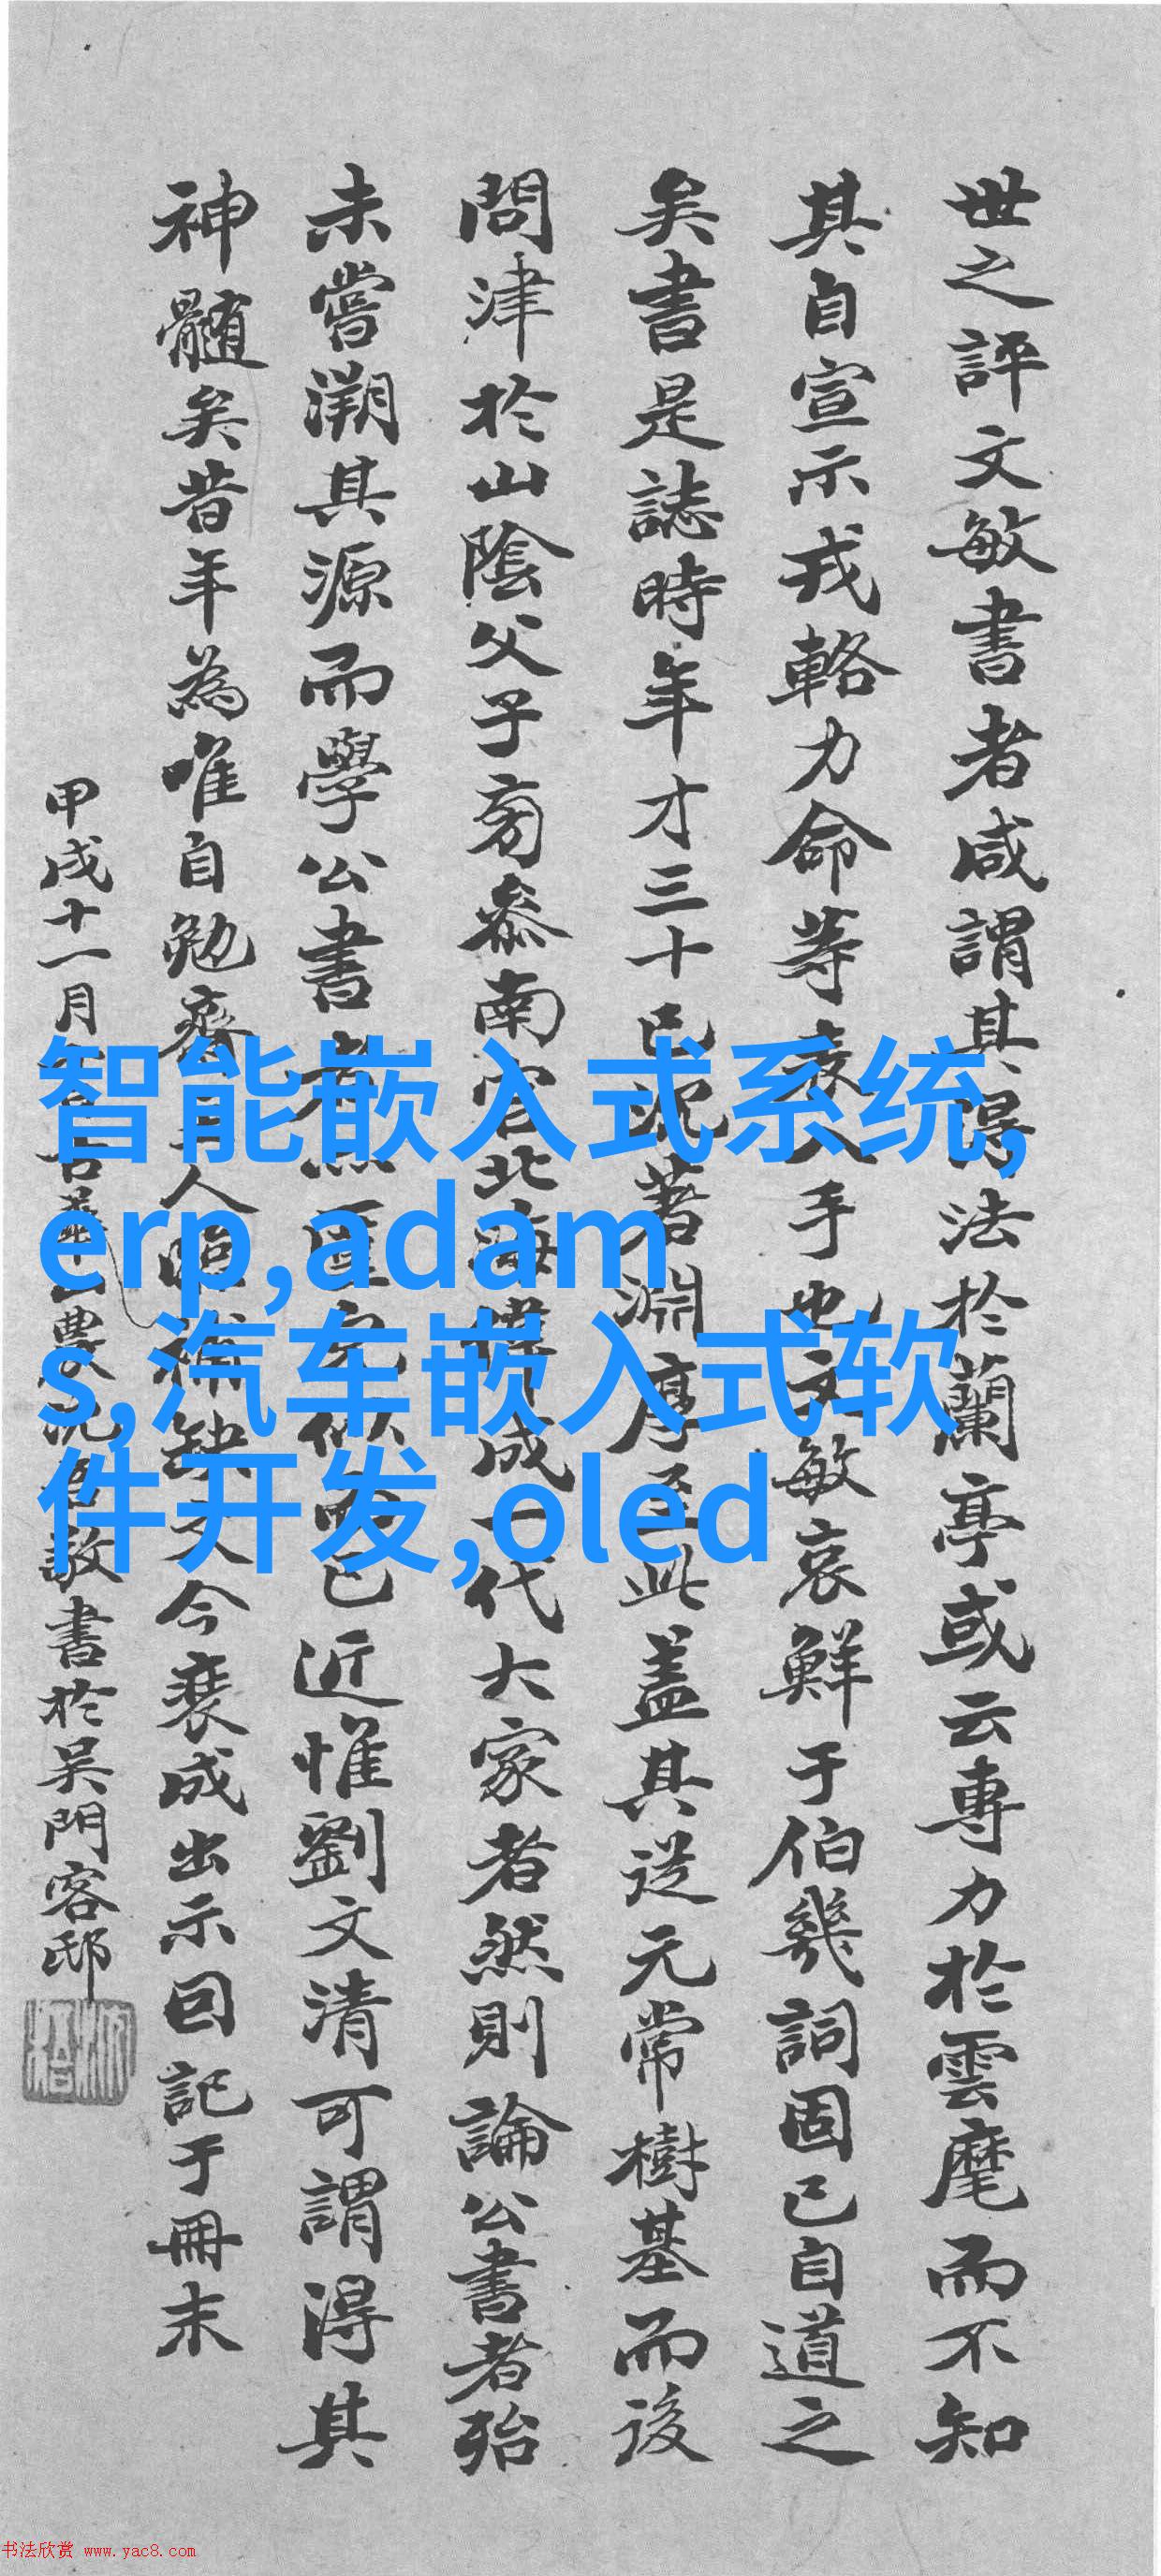 世之評文敏書者咸謂其得法於蘭亭或云專力於雲麾而不知
其自宣示戎輅力命等表入手也文敏哀鮮于伯幾詞固已自道之
矣書是誌時年才三十已沉著淵厚至此蓋其從元常樹基而後
問津於山陰父子旁參南宮北海蔚成一代大家者然則論公書者殆
未嘗溯其源而學公書者無僅形似而已近惟劉文清可謂得其
神髓矣昔年為唯自勉齋主人臨補缺文今裝成出示回記于冊末
甲戌十一月
書於吴門客邸
智能嵌入式系统,
erp,adam
s,汽车嵌入式软
件开发,oled
书法欣赏 www.yac8.com